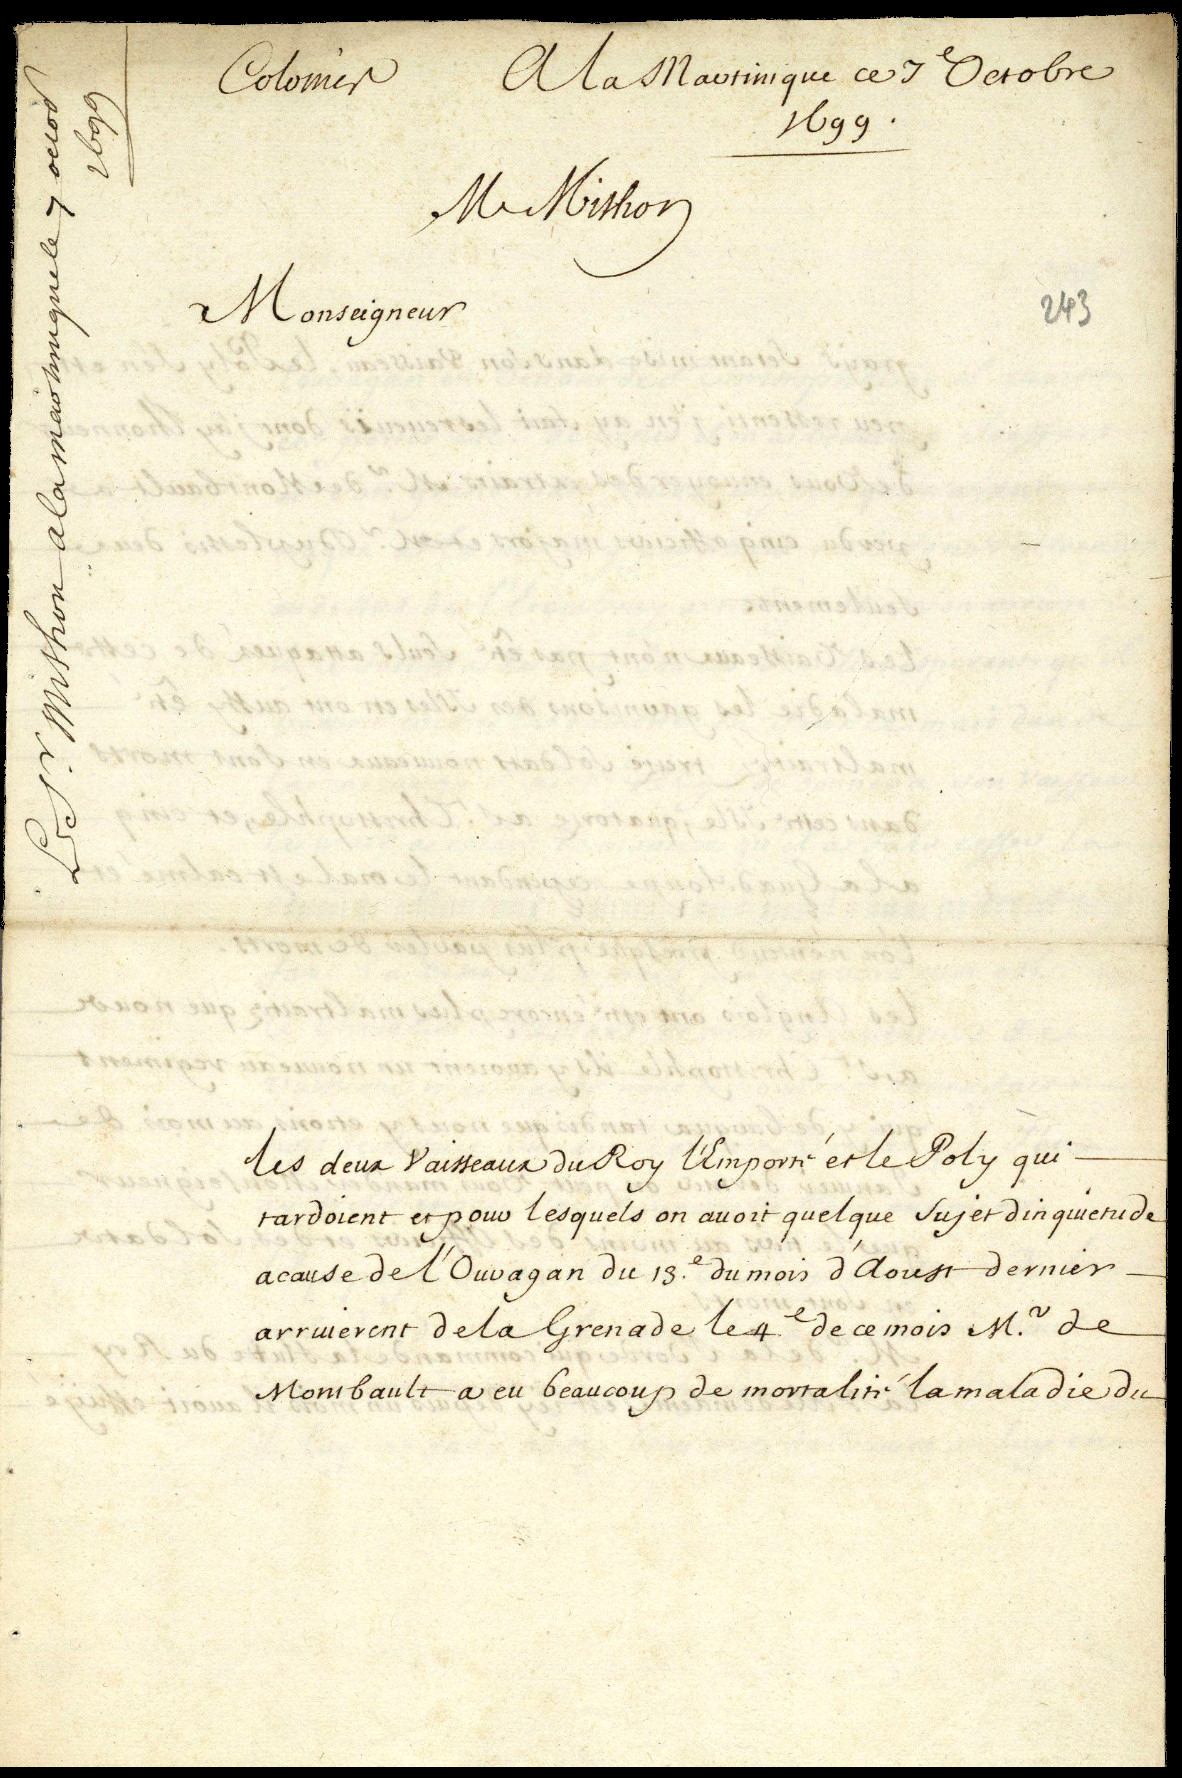 Colonies
A la Martinique ce 7e Octobre
1699.
Mr Mithon
Monseigneur
243
les deux Vaisseaux du Roy l'Emporté et le Poly qui
tardoient et pour lesquels on avoit quelque Sujet dinquietude
acause de l'Ouragan du 13.e du mois d'Aoust dernier
arriverent de la Grenade le 4.e de ce mois M.r de
Mombault a eu beaucoup de mortalité la maladie du
Le Sr. Mithon a la martinique le 7 octob
1699